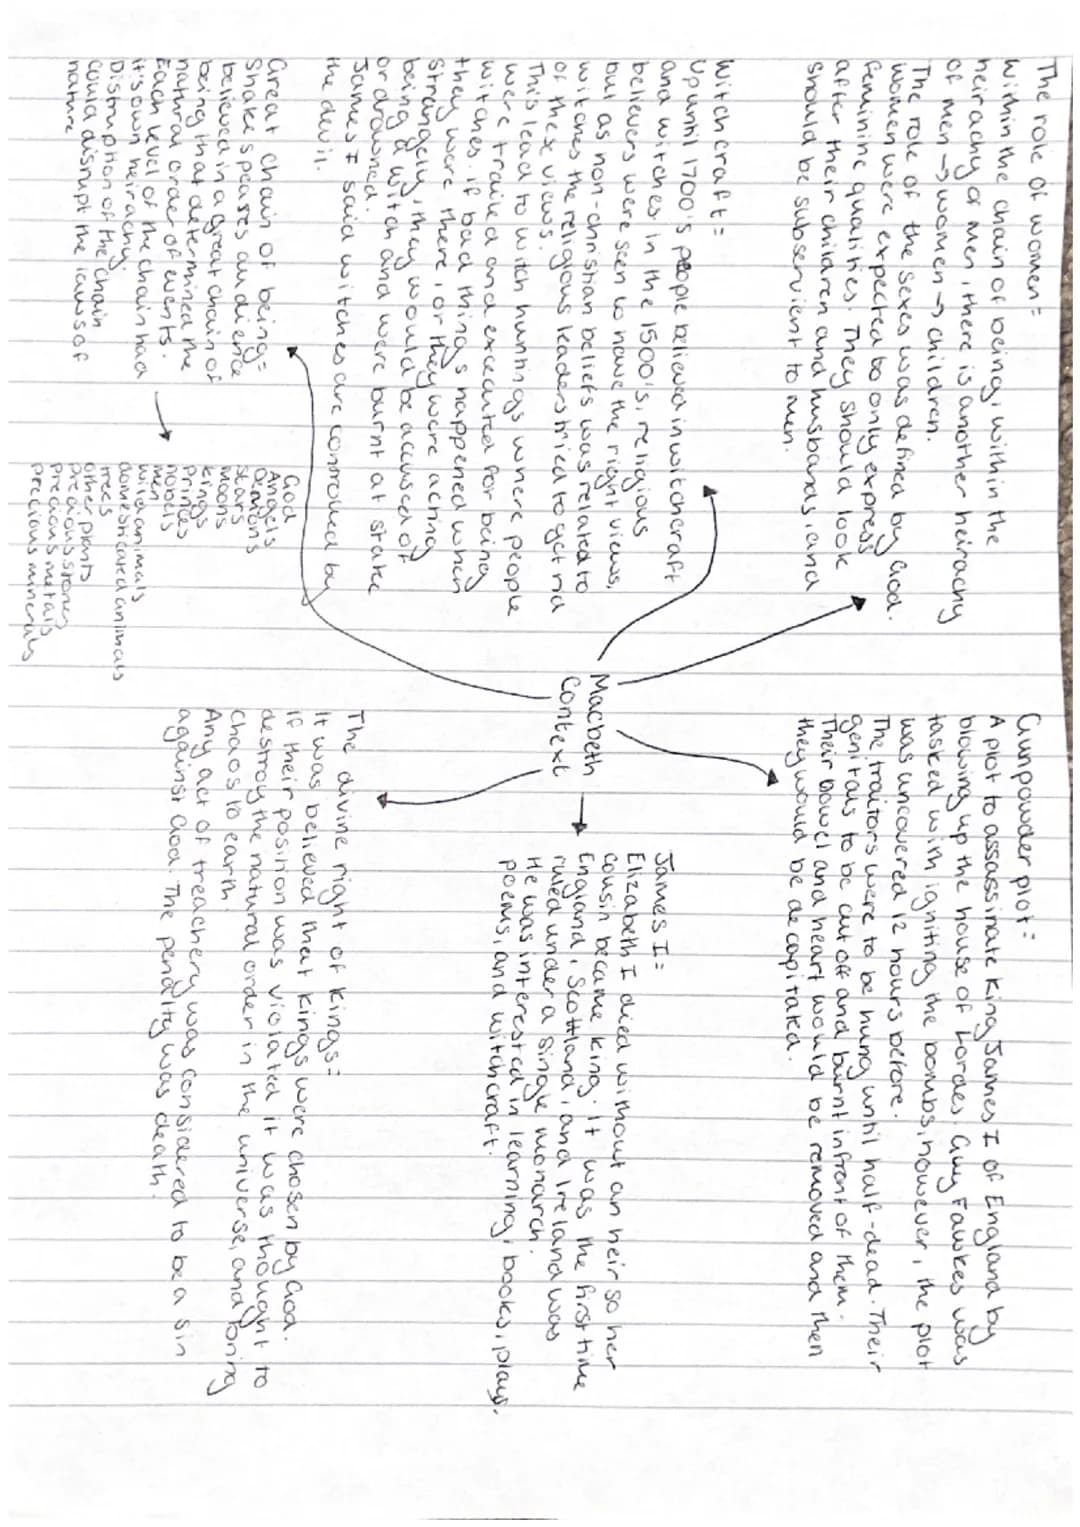 The role of women=
within the chain of being, within the
heirachy of men, there is another heirachy
of men → women → children.
The role of the sexes was defined by God.
women were expected to only express
feminine qualities. They should look
after their children and husbands, and
should be subservient to men.
Witchcraft=
up until 1700's people believed in witchcraft
and witches. in the 1500's, religious
believers were seen to have the right views,
but as non-christian beliefs was related to
witches the religious leaders tried to get rid
of these views.
This lead to witch huntings where people
were traited and excecuted for being
witches. if bad things happened when
they were there, or they were acting
strangely, they would be accused of
being a witch and were burnt at stake
or drowned.
James I said witches are controlled by
the devil.
Great chain of being=
Shakespeares audience
believed in a great chain of
being that determined the
natural order of events.
Each level of the chain had
it's own heirachy.
Disruption of the chain
could disrupt the laws of
nature
→
God
Angels
Demons
stars
moons
kings
princes
nobels
men
wild animals
domesticated animals
trees
other plants
precious stones
precious metals
precious minerals
Macbeth
Context
Gunpowder plot=
A plot to assassinate King James I of England by
blowing up the house of Lordes. Guy Fawkes was
tasked with igniting the bombs, however, the plot
was uncovered 12 hours before.
The traitors were to be hung until half-dead. Their
genitals to be cut off and burnt infront of them.
Their bowel and heart would be removed and then
they would be decapitated.
James I=
Elizabeth I died without an heir so her
cousin became king. It was the first time
England, Scottland, and Ireland was
ruled under a single monarch.
He was interested in learning, books, plays,
poems, and witchcraft.
The divine right of kings=
It was believed that kings were chosen by God.
If their position was violated it was thought to
destroy the natural order in the universe, and bring
chaos to earth.
Any act of treachery was considered to be a sin
against God. The penalty was death.